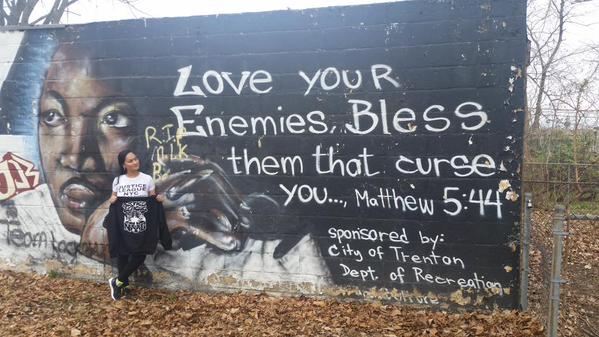 Love youR
Enemies, Bless
them that curse
you..., Matthew 5:44
sponsored by:
City of Trenton
Dept. of Recreation
R.I.P
JUSTICE
LEAGUE
NYC